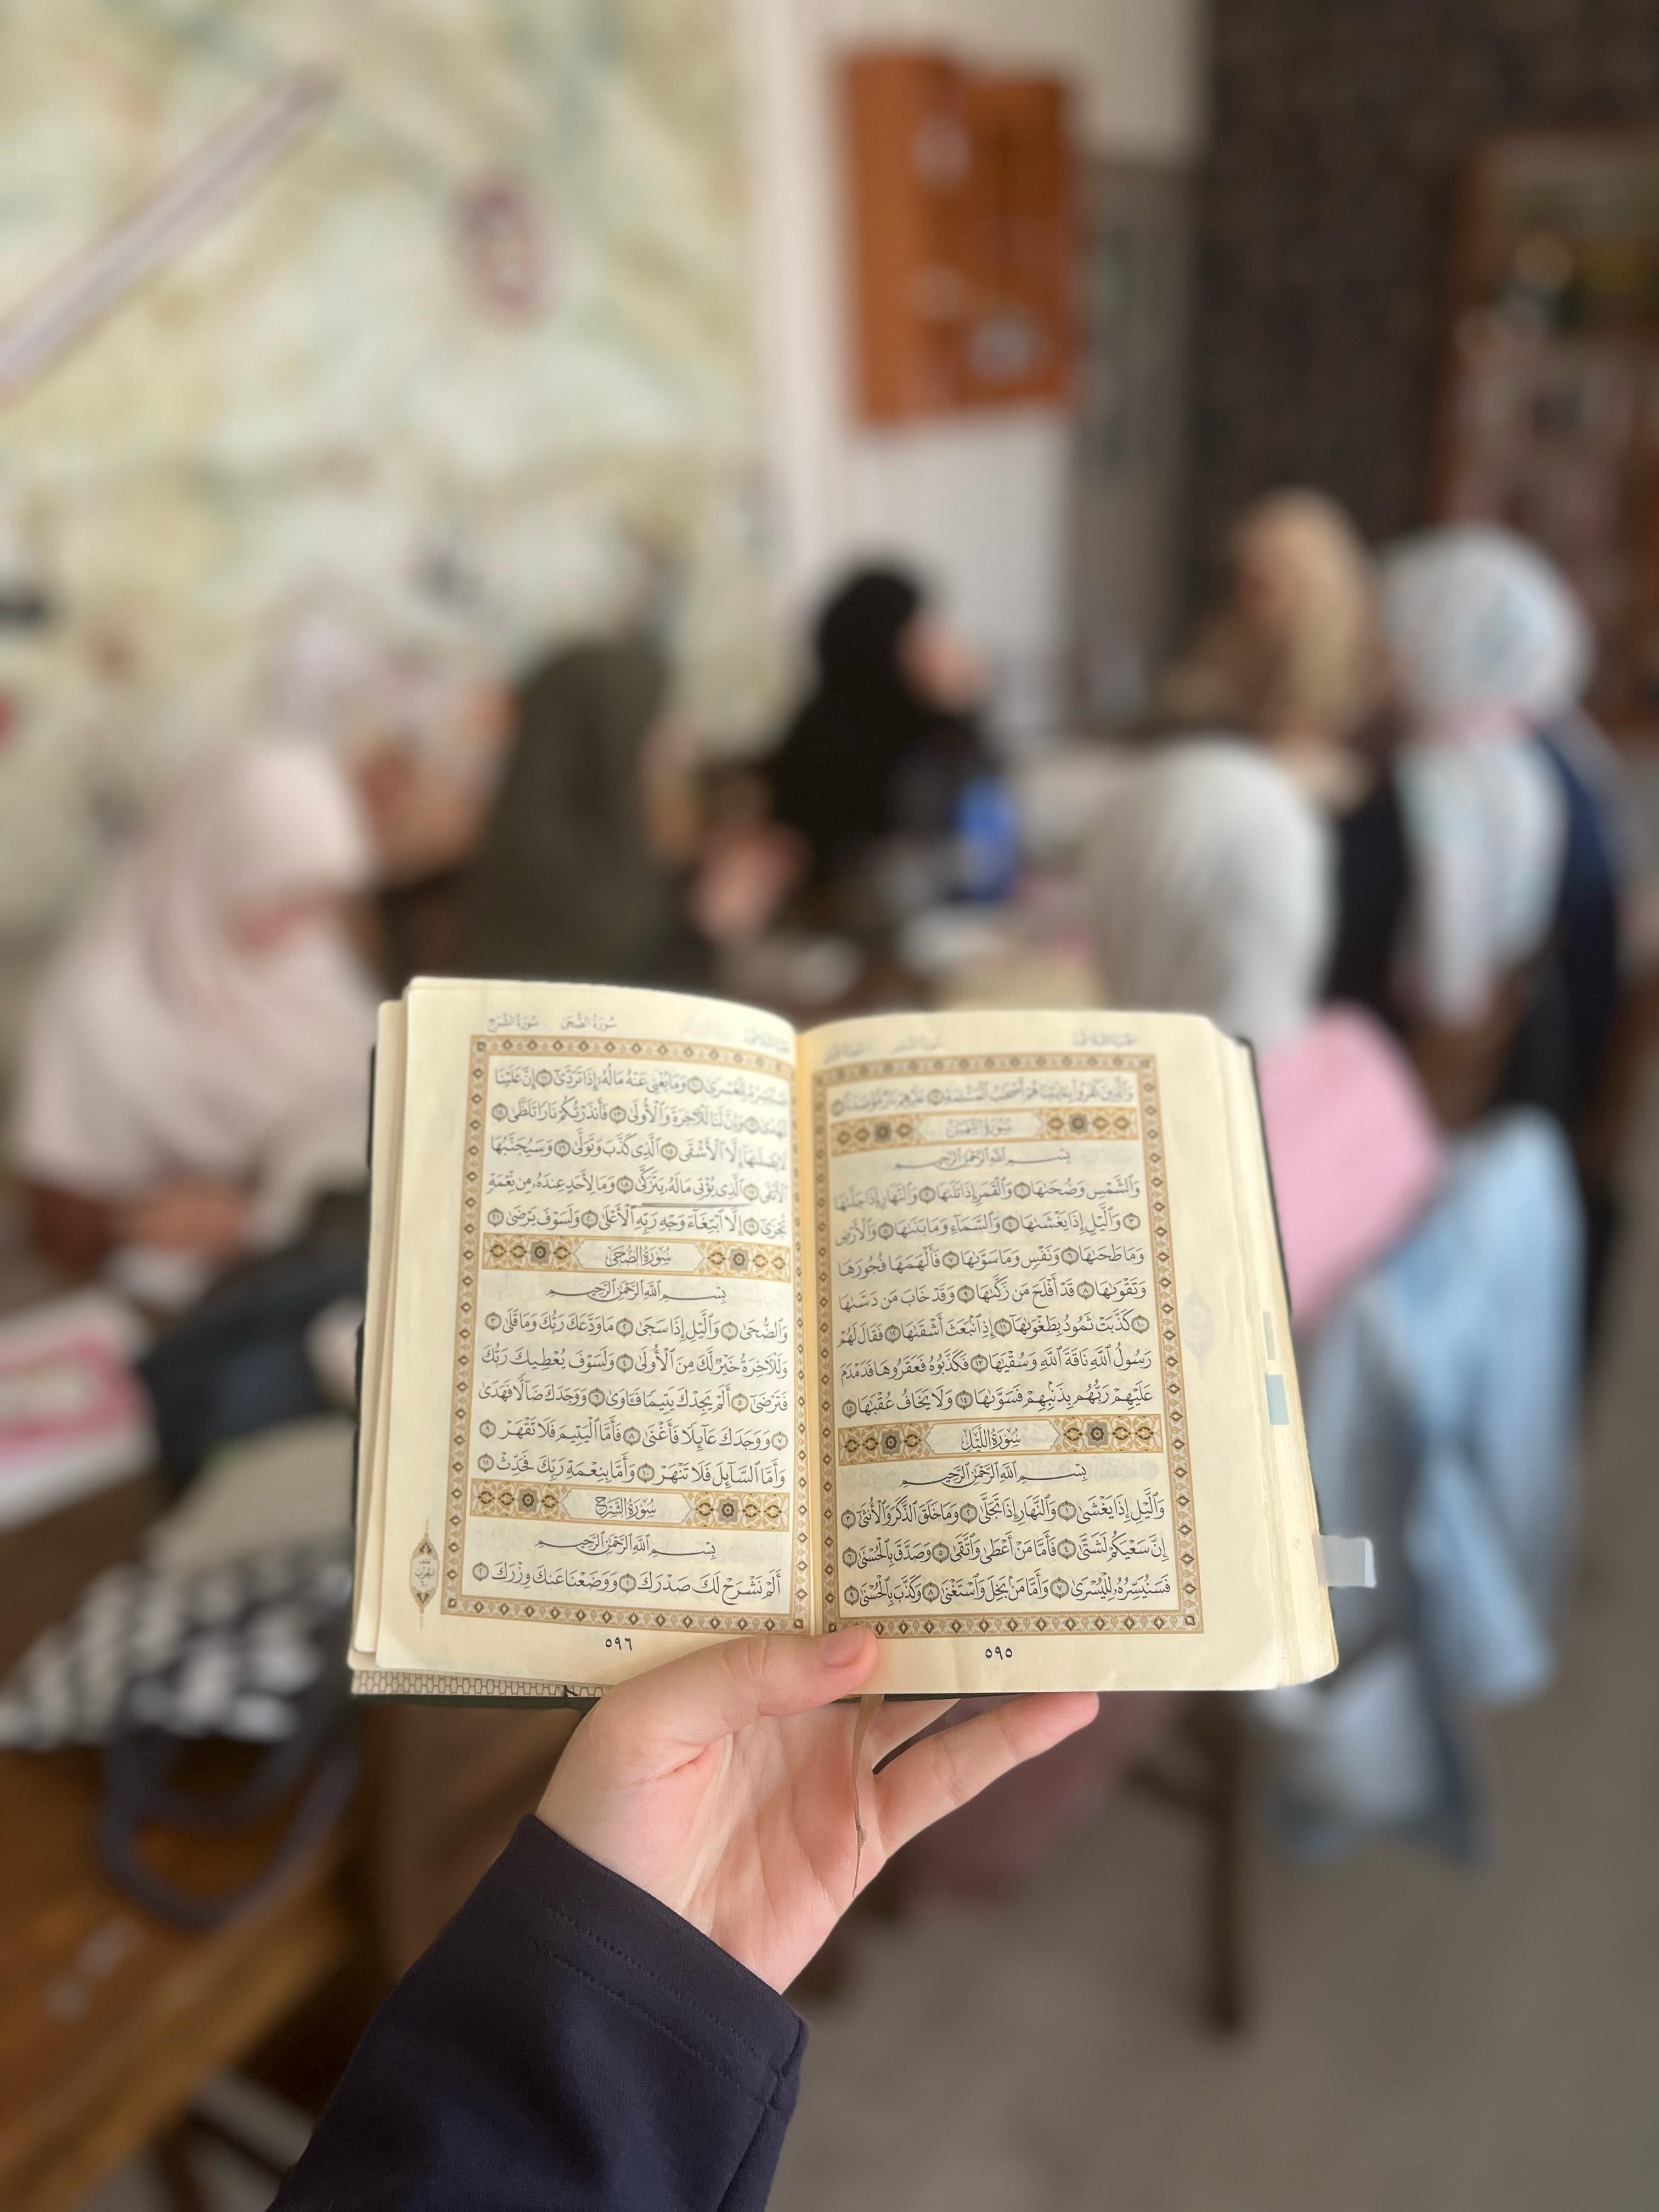 وَٱلَّذِينَ كَفَرُواْ بِـَٔايَٰتِنَا هُمْ أَصْحَٰبُ ٱلْمَشْـَٔمَةِ ١٩ عَلَيْهِمْ نَارٌ مُّؤْصَدَةٌۢ ٢٠
سُورَةُ الشَّمْسِ
بِسْمِ ٱللَّهِ ٱلرَّحْمَٰنِ ٱلرَّحِيمِ
وَٱلشَّمْسِ وَضُحَىٰهَا ١ وَٱلْقَمَرِ إِذَا تَلَىٰهَا ٢ وَٱلنَّهَارِ إِذَا جَلَّىٰهَا
٣ وَٱلَّيْلِ إِذَا يَغْشَىٰهَا ٤ وَٱلسَّمَآءِ وَمَا بَنَىٰهَا ٥ وَٱلْأَرْضِ
وَمَا طَحَىٰهَا ٦ وَنَفْسٍ وَمَا سَوَّىٰهَا ٧ فَأَلْهَمَهَا فُجُورَهَا
وَتَقْوَىٰهَا ٨ قَدْ أَفْلَحَ مَن زَكَّىٰهَا ٩ وَقَدْ خَابَ مَن دَسَّىٰهَا
١٠ كَذَّبَتْ ثَمُودُ بِطَغْوَىٰهَآ ١١ إِذِ ٱنۢبَعَثَ أَشْقَىٰهَا ١٢ فَقَالَ لَهُمْ
رَسُولُ ٱللَّهِ نَاقَةَ ٱللَّهِ وَسُقْيَٰهَا ١٣ فَكَذَّبُوهُ فَعَقَرُوهَا فَدَمْدَمَ
عَلَيْهِمْ رَبُّهُم بِذَنۢبِهِمْ فَسَوَّىٰهَا ١٤ وَلَا يَخَافُ عُقْبَٰهَا ١٥
سُورَةُ اللَّيْلِ
بِسْمِ ٱللَّهِ ٱلرَّحْمَٰنِ ٱلرَّحِيمِ
وَٱلَّيْلِ إِذَا يَغْشَىٰ ١ وَٱلنَّهَارِ إِذَا تَجَلَّىٰ ٢ وَمَا خَلَقَ ٱلذَّكَرَ وَٱلْأُنثَىٰٓ ٣
إِنَّ سَعْيَكُمْ لَشَتَّىٰ ٤ فَأَمَّا مَنْ أَعْطَىٰ وَٱتَّقَىٰ ٥ وَصَدَّقَ بِٱلْحُسْنَىٰ ٦
فَسَنُيَسِّرُهُۥ لِلْيُسْرَىٰ ٧ وَأَمَّا مَنۢ بَخِلَ وَٱسْتَغْنَىٰ ٨ وَكَذَّبَ بِٱلْحُسْنَىٰ ٩
٥٩٥
سُورَةُ الضُّحَىٰ سُورَةُ الشَّرْحِ
فَسَنُيَسِّرُهُۥ لِلْعُسْرَىٰ ١٠ وَمَا يُغْنِي عَنْهُ مَالُهُۥٓ إِذَا تَرَدَّىٰٓ ١١ إِنَّ عَلَيْنَا
لَلْهُدَىٰ ١٢ وَإِنَّ لَنَا لَلْأَخِرَةَ وَٱلْأُولَىٰ ١٣ فَأَنذَرْتُكُمْ نَارًا تَلَظَّىٰ ١٤
لَا يَصْلَىٰهَآ إِلَّا ٱلْأَشْقَى ١٥ ٱلَّذِي كَذَّبَ وَتَوَلَّىٰ ١٦ وَسَيُجَنَّبُهَا
ٱلْأَتْقَى ١٧ ٱلَّذِي يُؤْتِي مَالَهُۥ يَتَزَكَّىٰ ١٨ وَمَا لِأَحَدٍ عِندَهُۥ مِن نِّعْمَةٍ
تُجْزَىٰٓ ١٩ إِلَّا ٱبْتِغَآءَ وَجْهِ رَبِّهِ ٱلْأَعْلَىٰ ٢٠ وَلَسَوْفَ يَرْضَىٰ ٢١
سُورَةُ الضُّحَىٰ
بِسْمِ ٱللَّهِ ٱلرَّحْمَٰنِ ٱلرَّحِيمِ
وَٱلضُّحَىٰ ١ وَٱلَّيْلِ إِذَا سَجَىٰ ٢ مَا وَدَّعَكَ رَبُّكَ وَمَا قَلَىٰ ٣
وَلَلْأَخِرَةُ خَيْرٌ لَّكَ مِنَ ٱلْأُولَىٰ ٤ وَلَسَوْفَ يُعْطِيكَ رَبُّكَ
فَتَرْضَىٰٓ ٥ أَلَمْ يَجِدْكَ يَتِيمًا فَـَٔاوَىٰ ٦ وَوَجَدَكَ ضَآلًّا فَهَدَىٰ
٧ وَوَجَدَكَ عَآئِلًا فَأَغْنَىٰ ٨ فَأَمَّا ٱلْيَتِيمَ فَلَا تَقْهَرْ ٩
وَأَمَّا ٱلسَّآئِلَ فَلَا تَنْهَرْ ١٠ وَأَمَّا بِنِعْمَةِ رَبِّكَ فَحَدِّثْ ١١
سُورَةُ الشَّرْحِ
بِسْمِ ٱللَّهِ ٱلرَّحْمَٰنِ ٱلرَّحِيمِ
أَلَمْ نَشْرَحْ لَكَ صَدْرَكَ ١ وَوَضَعْنَا عَنكَ وِزْرَكَ ٢
٥٩٦